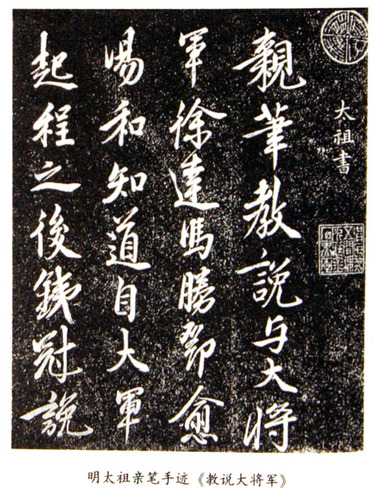 太祖書
親筆教說与大將
軍徐達馮勝鄧愈
湯和知道自大軍
起程之後銕冠說
明太祖亲笔手迹《教说大将军》